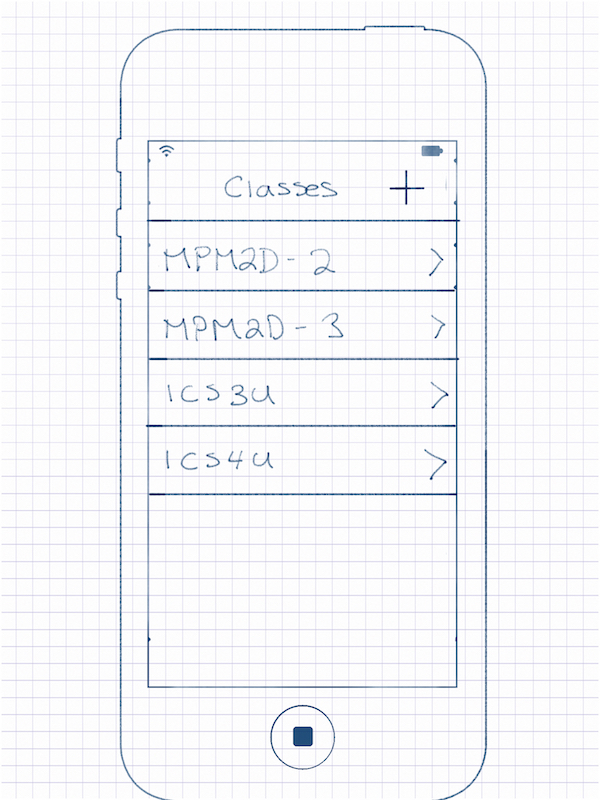 Classes +
MPM2D - 2 >
MPM2D - 3 >
ICS3U >
ICS4U >